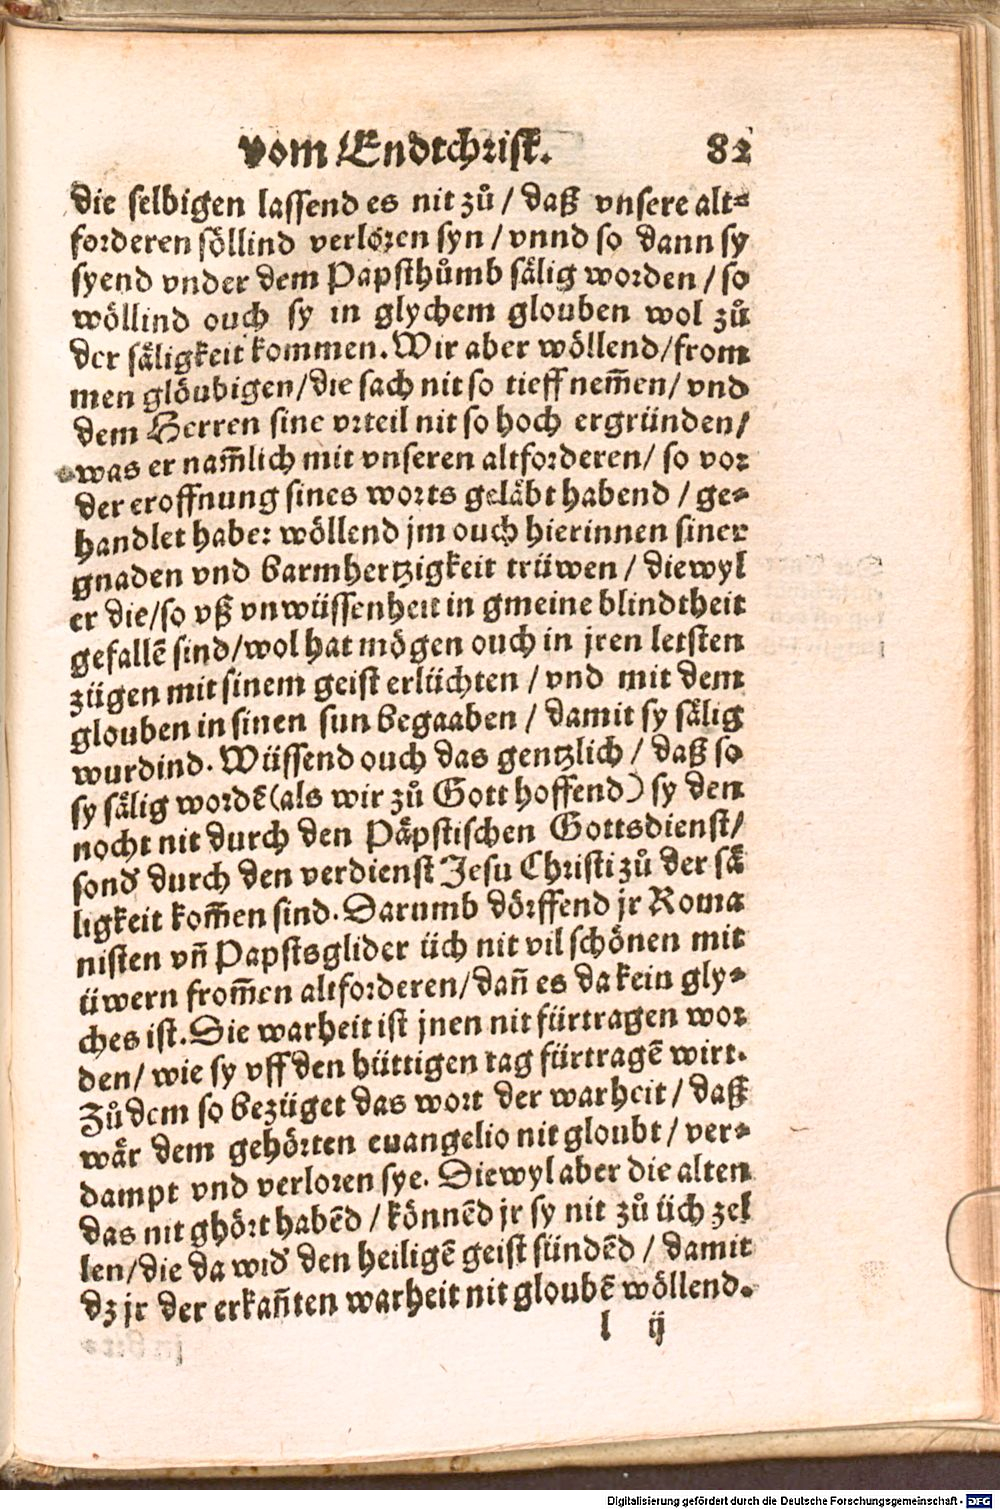 vom Endtchrist. 82
die selbigen lassend es nit zů / daß vnsere alt=
forderen söllind verloren syn / vnnd so dann sy
syend vnder dem Papsthůmb sälig worden / so
wöllind ouch sy in glychem glouben wol zů
der säligkeit kommen. Wir aber wöllend/from
men glöubigen/die sach nit so tieff nem̄en/ vnd
dem Herren sine vrteil nit so hoch ergründen/
was er nam̄lich mit vnseren altforderen/ so vor
der eroffnung sines worts geläbt habend / ge=
handlet habe: wöllend jm ouch hierinnen siner
gnaden vnd barmhertzigkeit trüwen / diewyl
er die/so vß vnwüssenheit in gmeine blindtheit
gefallē sind/wol hat mögen ouch in jren letsten
zügen mit sinem geist erlüchten / vnd mit dem
glouben in sinen sun begaaben / damit sy sälig
wurdind. Wüssend ouch das gentzlich / daß so
sy sälig wordē(als wir zů Gott hoffend) sy den
nocht nit durch den Päpstischen Gottsdienst/
sond' durch den verdienst Jesu Christi zů der sä
ligkeit kom̄en sind. Darumb dörffend jr Roma
nisten vn̄ Papstsglider üch nit vil schönen mit
üwern from̄en altforderen/dan̄ es da kein gly=
ches ist. Die warheit ist jnen nit fürtragen wor
den/ wie sy vff den hüttigen tag fürtragē wirt.
Zů dem so bezüget das wort der warheit / daß
wär dem gehörten euangelio nit gloubt / ver=
dampt vnd verloren sye. Diewyl aber die alten
das nit ghört habēd / könnēd jr sy nit zů üch zel
len/die da wid' den heiligē geist sündēd / damit
dz jr der erkan̄ten warheit nit gloubē wöllend.
l ij
Digitalisierung gefördert durch die Deutsche Forschungsgemeinschaft - DFG